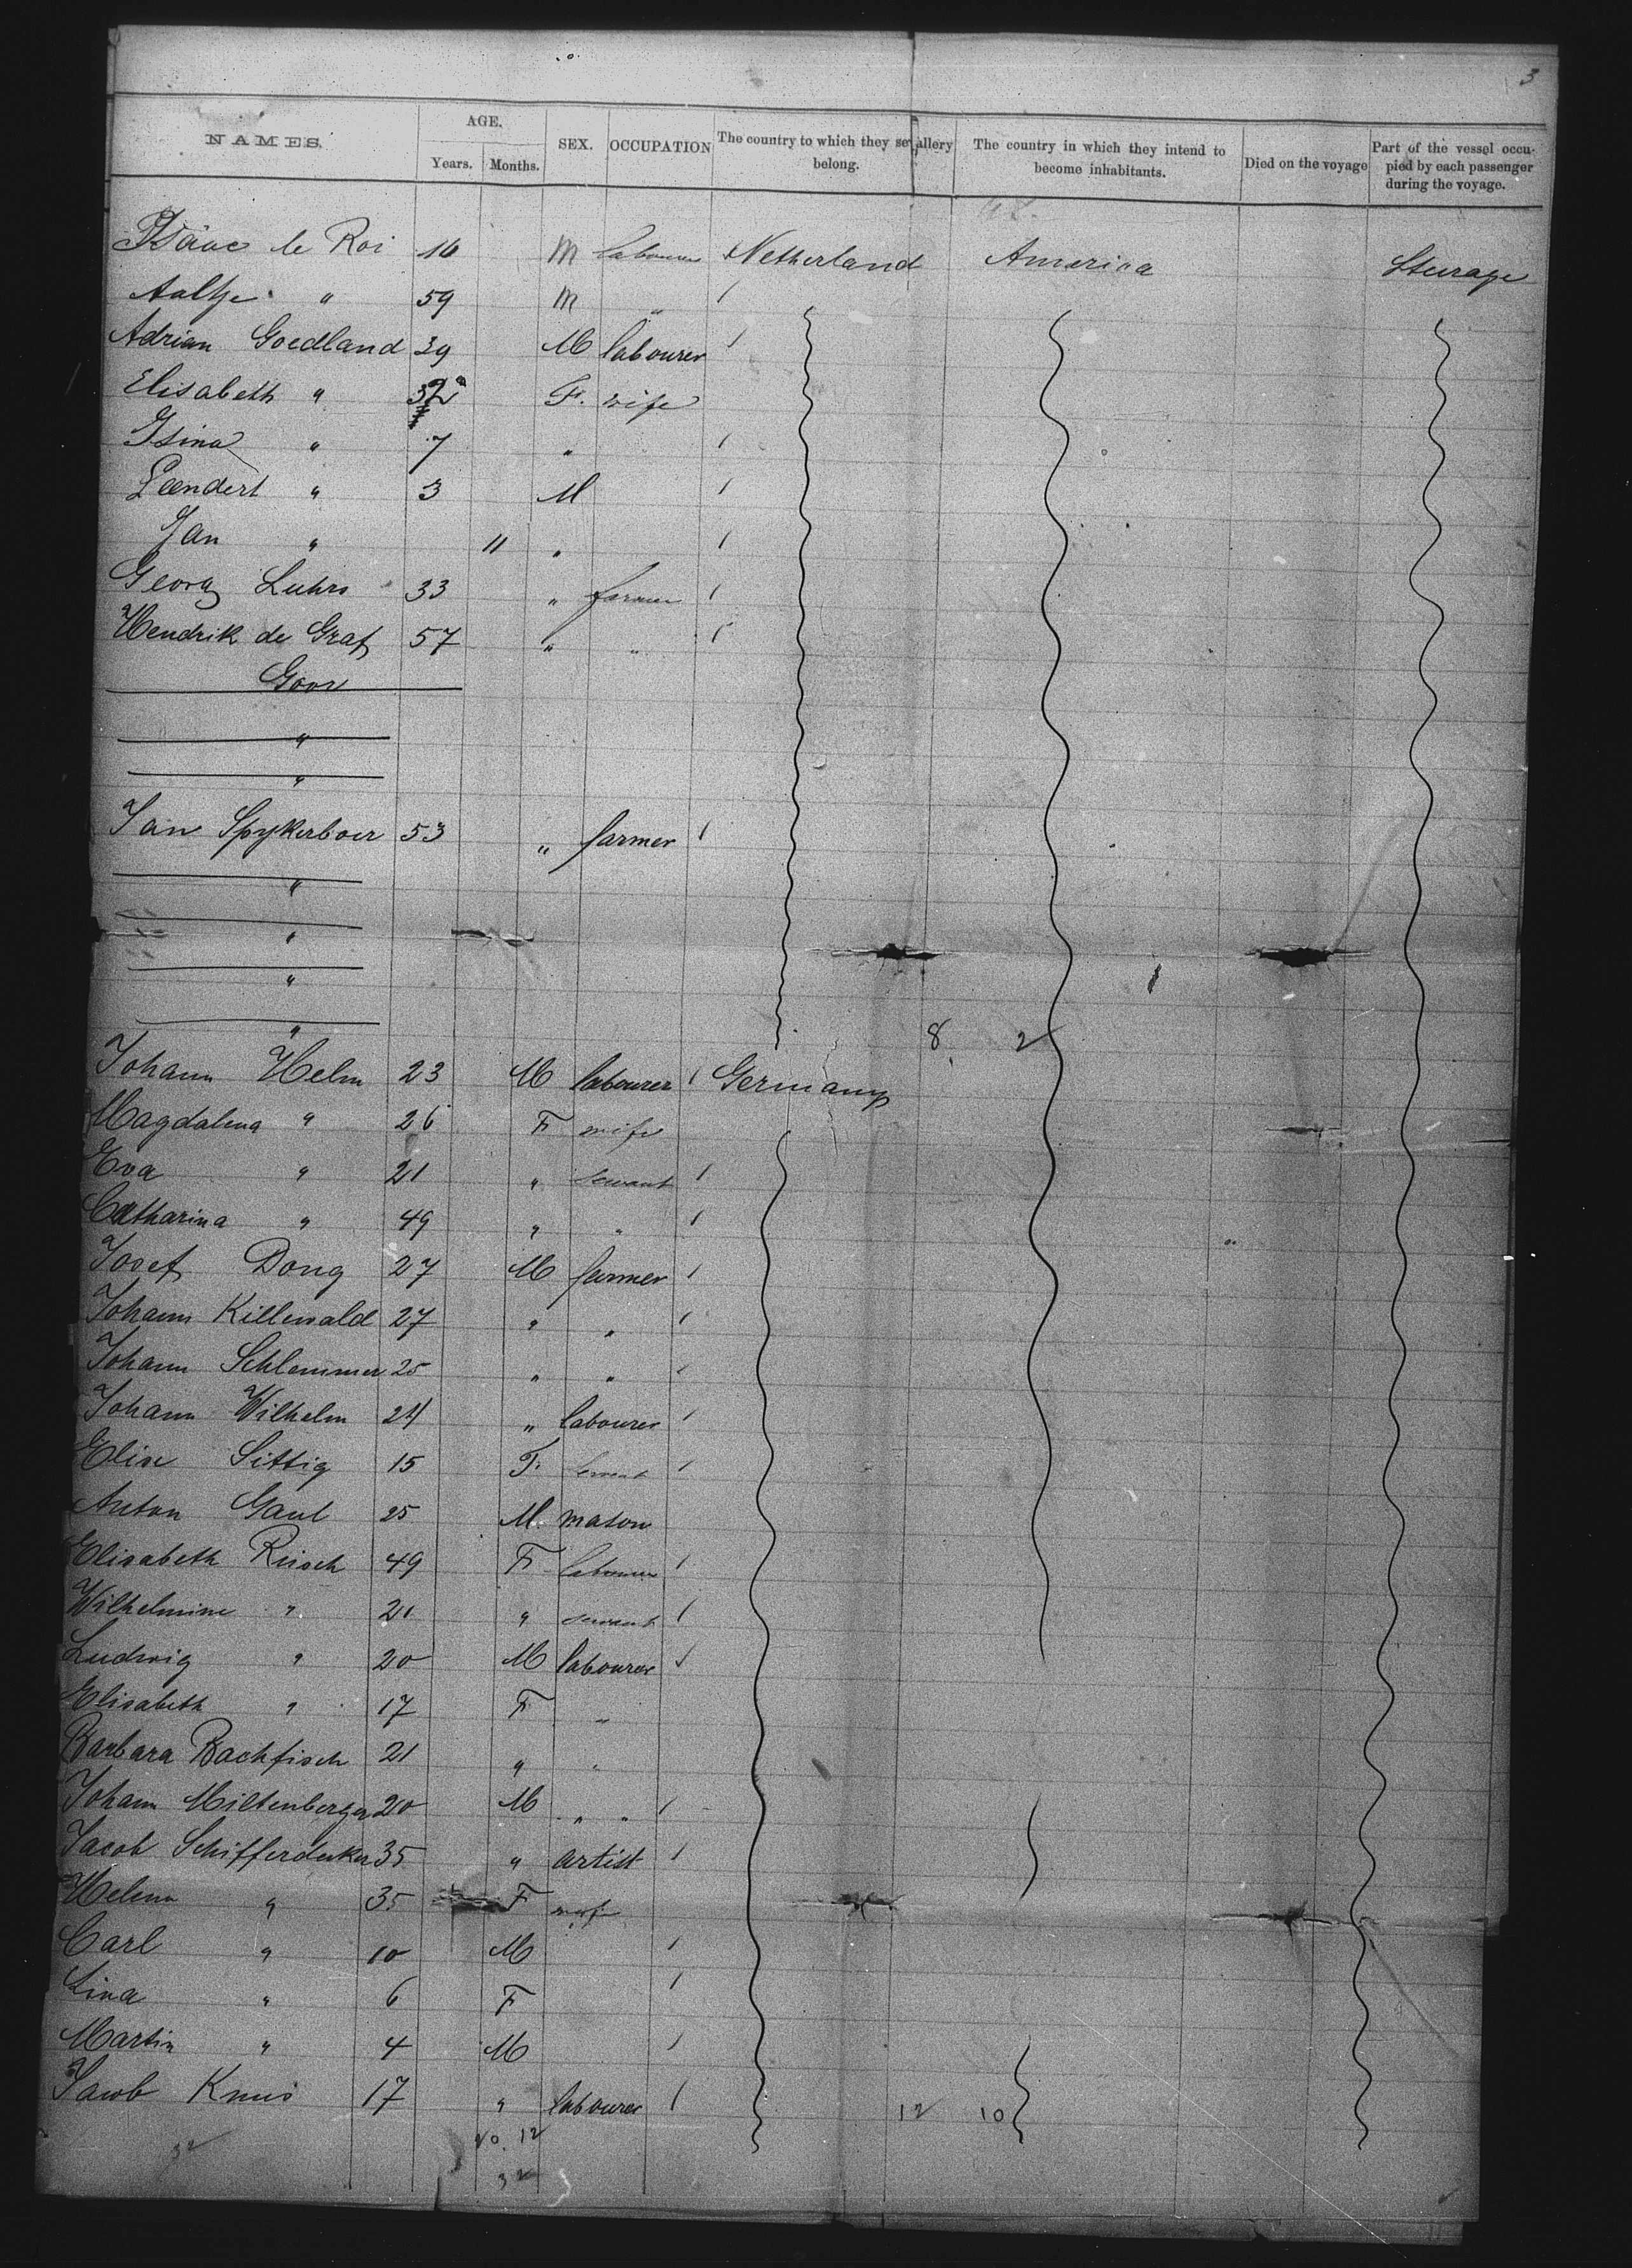 3
NAMES.
AGE.
Years. Months.
SEX.
OCCUPATION
The country to which they severally belong.
The country in which they intend to become inhabitants.
Died on the voyage
Part of the vessel occupied by each passenger during the voyage.
Isaac le Roi 16 M labourer Netherland America Steerage
Aaltje " 59 M "
Adrian Goedland 39 M labourer
Elisabeth " 32 F. wife
Gsina " 7 "
Leendert " 3 M
Jan " 11 "
Georg Luhrs 33 " farmer
Hendrik de Graf 57 " "
Goor
"
"
Jan Spykerboer 53 " farmer
"
"
"
"
8 2
Johann Helm 23 M labourer Germany
Magdalena " 26 F wife
Eva " 21 " servant
Catharina " 49 " "
Josef Dong 27 M farmer
Johann Killewald 27 " "
Johann Schlemmer 25 " "
Johann Wilhelm 24 " labourer
Elise Sittig 15 F. servant
Anton Gaul 25 M. mason
Elisabeth Reisch 49 F labourer
Wilhelmine " 21 " servant
Ludwig " 20 M labourer
Elisabeth " 17 F "
Barbara Bachfisch 21 " "
Johann Miltenberger 20 M " "
Jacob Schifferdecker 35 " artist
Helena " 35 F wife
Carl " 10 M
Lina " 6 F
Martin " 4 M
Jacob Knus 17 " labourer
12 10
20. 12
32
32